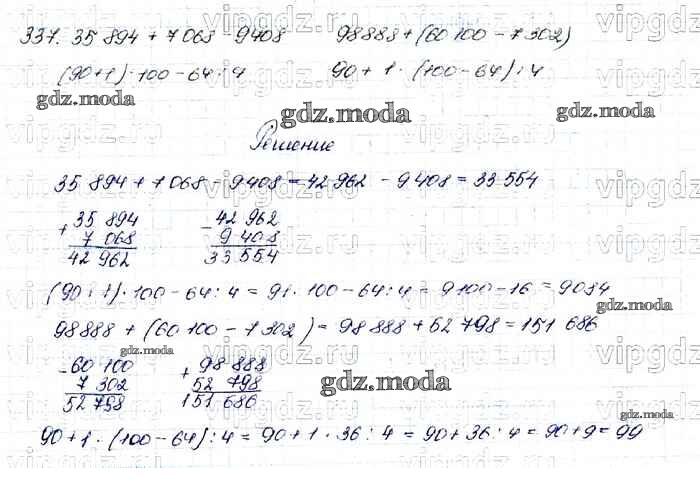 337. 35 894 + 7 068 - 9408 98888 + (60 100 - 7 302)
(90+1) · 100 - 64 : 4 90 + 1 · (100 - 64) : 4
gdz.moda
gdz.moda
gdz.moda
Решение
35 894 + 7 068 - 9 408 = 42 962 - 9 408 = 33 554
+ 35 894 - 42 962
7 068 9 408
42 962 33 554
(90 + 1) · 100 - 64 : 4 = 91 · 100 - 64 : 4 = 9100 - 16 = 9084
98 888 + (60 100 - 7 302) = 98 888 + 52 798 = 151 686
gdz.moda
gdz.moda
- 60 100 + 98 888
7 302 52 798
52 798 151 686
gdz.moda
90 + 1 · (100 - 64) : 4 = 90 + 1 · 36 : 4 = 90 + 36 : 4 = 90 + 9 = 99
gdz.moda
vipgdz.ru